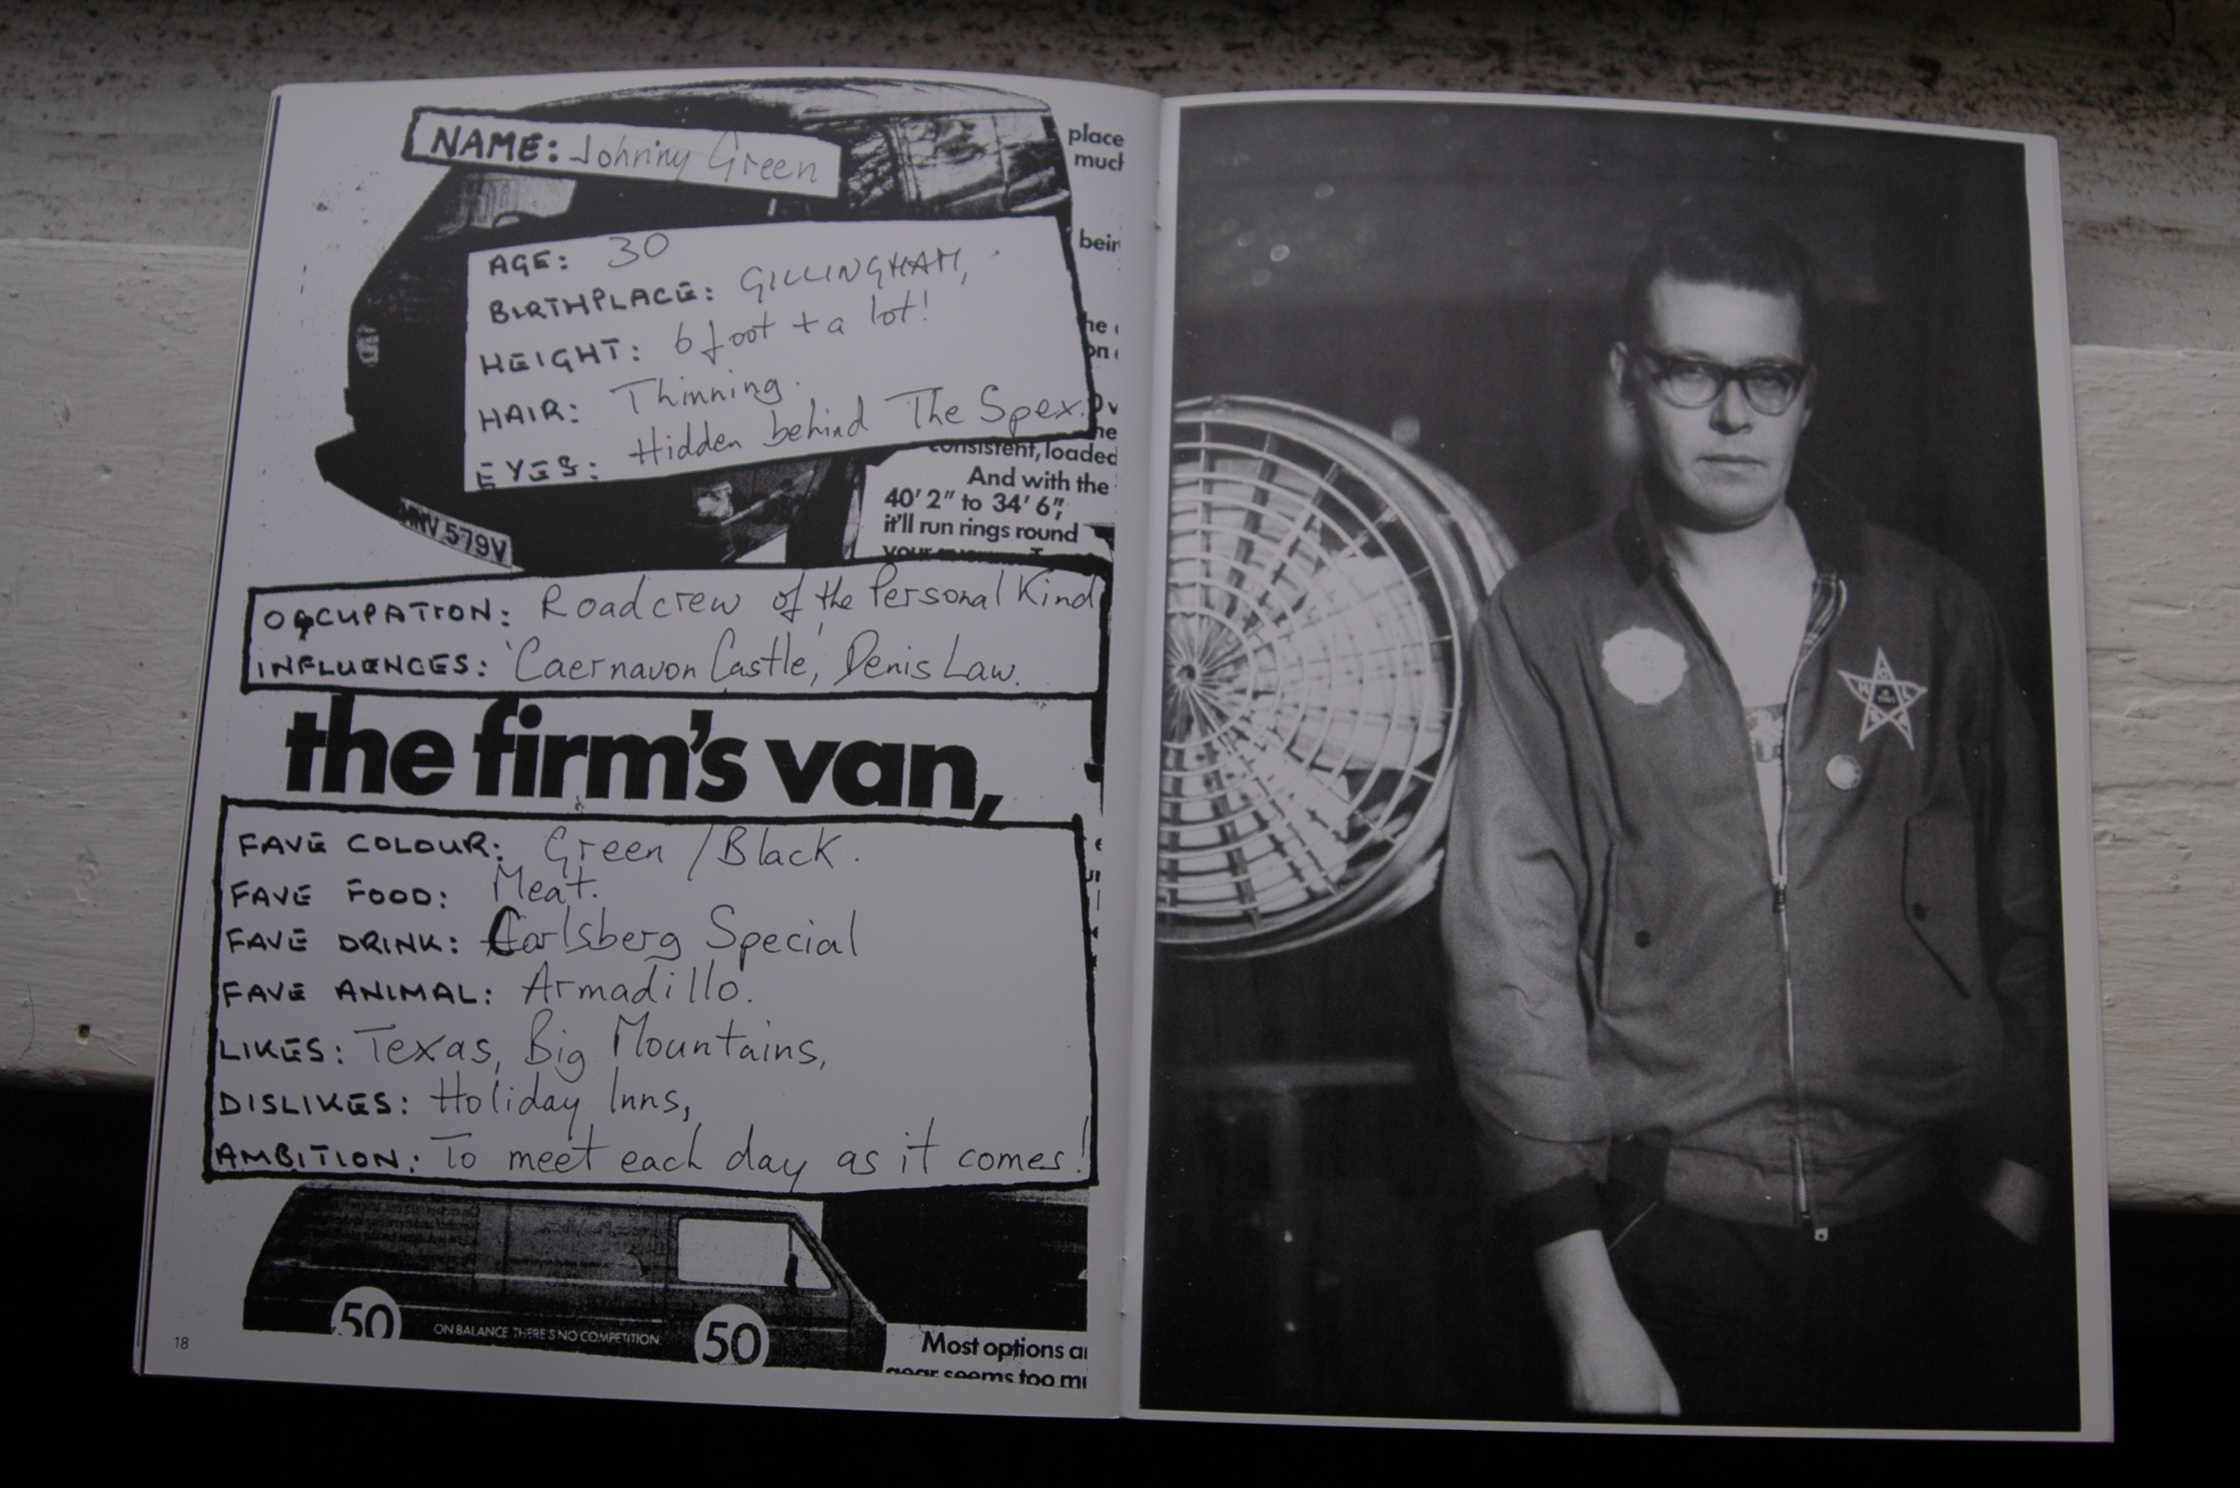 NAME: Johnny Green
place
much
AGE: 30
bein
BIRTHPLACE: GILLINGHAM,
HEIGHT: 6 foot + a lot!
HAIR: Thinning.
EYES: Hidden behind The Spex.
consistent, loaded
And with the
40' 2" to 34' 6",
it'll run rings round
579V
OCCUPATION: Roadcrew of the Personal Kind
INFLUENCES: 'Caernavon Castle,' Denis Law.
the firm's van,
FAVE COLOUR: Green / Black.
FAVE FOOD: Meat.
FAVE DRINK: Carlsberg Special
FAVE ANIMAL: Armadillo.
LIKES: Texas, Big Mountains,
DISLIKES: Holiday Inns,
AMBITION: To meet each day as it comes!
50 ON BALANCE THERE'S NO COMPETITION. 50
Most options
gear seems too
18